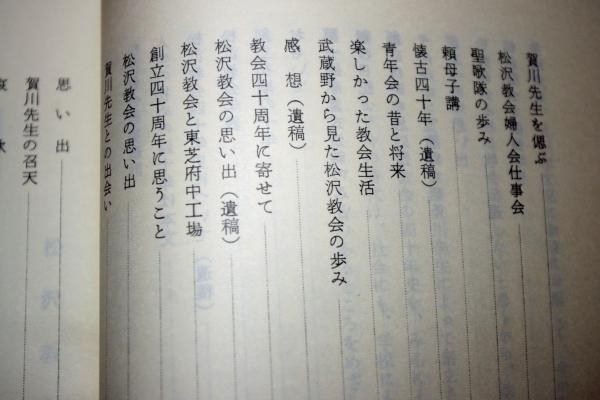 賀川先生を偲ぶ
松沢教会婦人会仕事会
聖歌隊の歩み
頼母子講
懐古四十年（遺稿）
青年会の昔と将来
楽しかった教会生活
武蔵野から見た松沢教会の歩み
感想（遺稿）
教会四十周年に寄せて
松沢教会の思い出（遺稿）
松沢教会と東芝府中工場
創立四十周年に思うこと
松沢教会の思い出
賀川先生との出会い
思い出
賀川先生の召天
哀歌